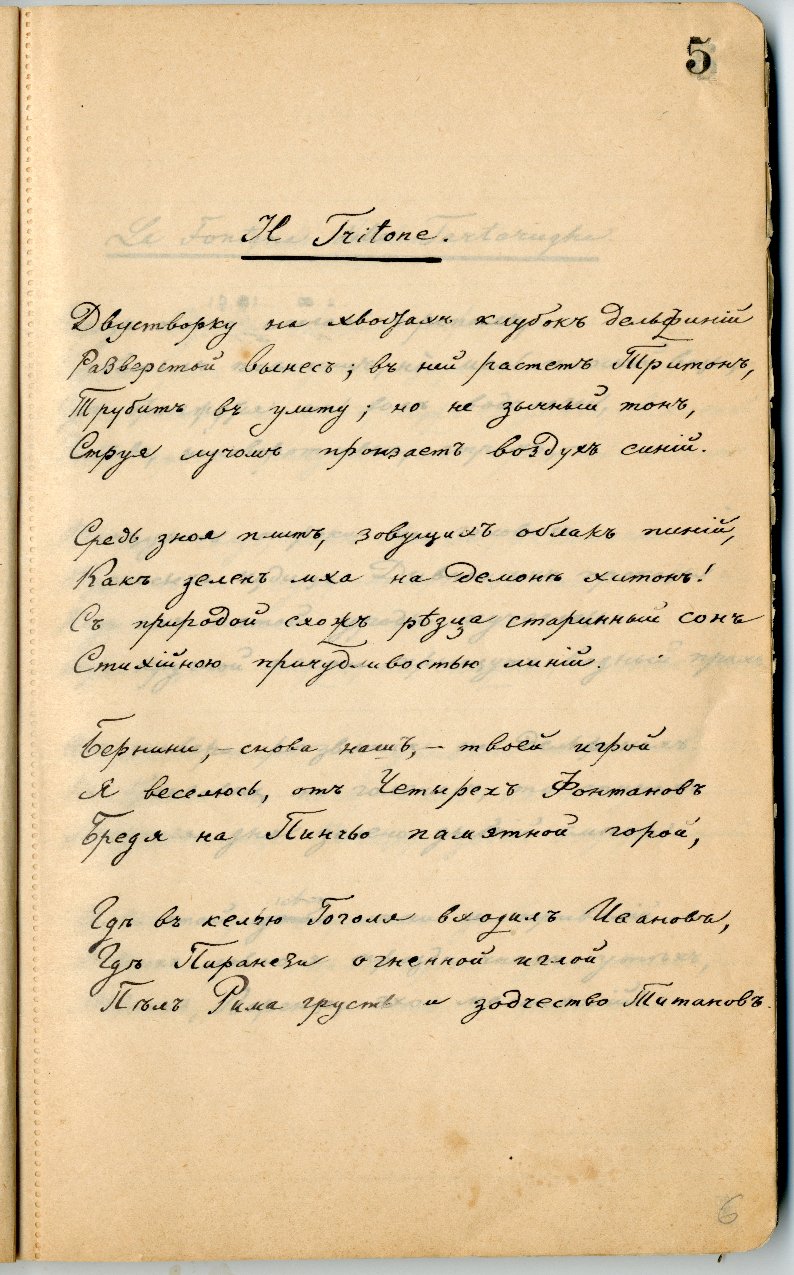 5
Il Tritone.
Двустворку на хвостахъ клубокъ дельфиній
Разверстой вынесъ; въ ней растетъ Тритонъ,
Трубитъ въ улиту; но не зычный тонъ,
Струя лучомъ пронзаетъ воздухъ синій.
Средь зноя плитъ, зовущихъ облакъ пиній,
Какъ зеленъ мха на демонѣ хитонъ!
Съ природой схожъ рѣзца старинный сонъ
Стихійною причудливостью линій.
Бернини, – снова нашъ, – твоей игрой
Я веселюсь, отъ Четырехъ Фонтановъ
Бредя на Пинчьо памятной горой,
Гдѣ въ келью Гоголя входилъ Ивановъ,
Гдѣ Пиранези огненной иглой
Пѣлъ Рима грусть и зодчество Титановъ.
6